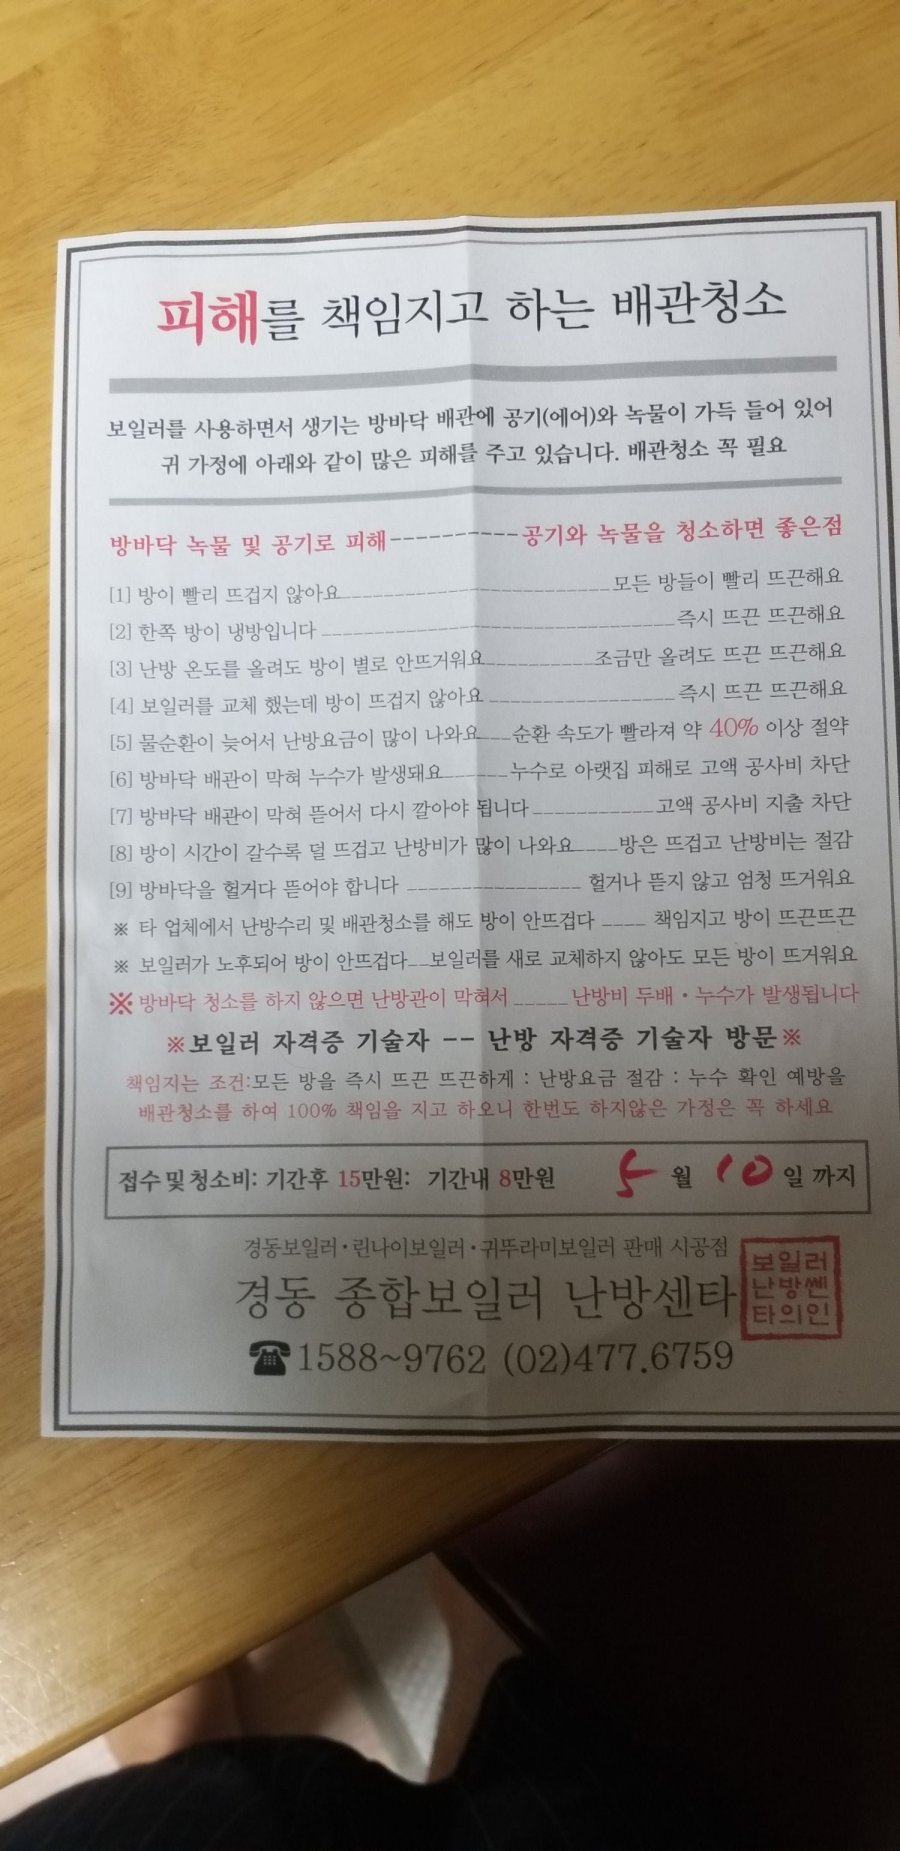 피해를 책임지고 하는 배관청소
보일러를 사용하면서 생기는 방바닥 배관에 공기(에어)와 녹물이 가득 들어 있어
귀 가정에 아래와 같이 많은 피해를 주고 있습니다. 배관청소 꼭 필요
방바닥 녹물 및 공기로 피해----------공기와 녹물을 청소하면 좋은점
[1] 방이 빨리 뜨겁지 않아요__________모든 방들이 빨리 뜨끈해요
[2] 한쪽 방이 냉방입니다__________즉시 뜨끈 뜨끈해요
[3] 난방 온도를 올려도 방이 별로 안뜨거워요__________조금만 올려도 뜨끈 뜨끈해요
[4] 보일러를 교체 했는데 방이 뜨겁지 않아요__________즉시 뜨끈 뜨끈해요
[5] 물순환이 늦어서 난방요금이 많이 나와요___순환 속도가 빨라져 약 40% 이상 절약
[6] 방바닥 배관이 막혀 누수가 발생돼요______누수로 아랫집 피해로 고액 공사비 차단
[7] 방바닥 배관이 막혀 뜯어서 다시 깔아야 됩니다__________고액 공사비 지출 차단
[8] 방이 시간이 갈수록 덜 뜨겁고 난방비가 많이 나와요____방은 뜨겁고 난방비는 절감
[9] 방바닥을 헐거다 뜯어야 합니다 __________ 헐거나 뜯지 않고 엄청 뜨거워요
※ 타 업체에서 난방수리 및 배관청소를 해도 방이 안뜨겁다 ____ 책임지고 방이 뜨끈뜨끈
※ 보일러가 노후되어 방이 안뜨겁다__보일러를 새로 교체하지 않아도 모든 방이 뜨거워요
※방바닥 청소를 하지 않으면 난방관이 막혀서 _____ 난방비 두배·누수가 발생됩니다
※보일러 자격증 기술자 -- 난방 자격증 기술자 방문※
책임지는 조건:모든 방을 즉시 뜨끈 뜨끈하게 : 난방요금 절감 : 누수 확인 예방을
배관청소를 하여 100% 책임을 지고 하오니 한번도 하지않은 가정은 꼭 하세요
접수 및 청소비: 기간후 15만원: 기간내 8만원 5 월 10 일 까지
경동보일러·린나이보일러·귀뚜라미보일러 판매 시공점
경동 종합보일러 난방센타
보일러
난방쎈
타의인
☎1588~9762 (02)477.6759